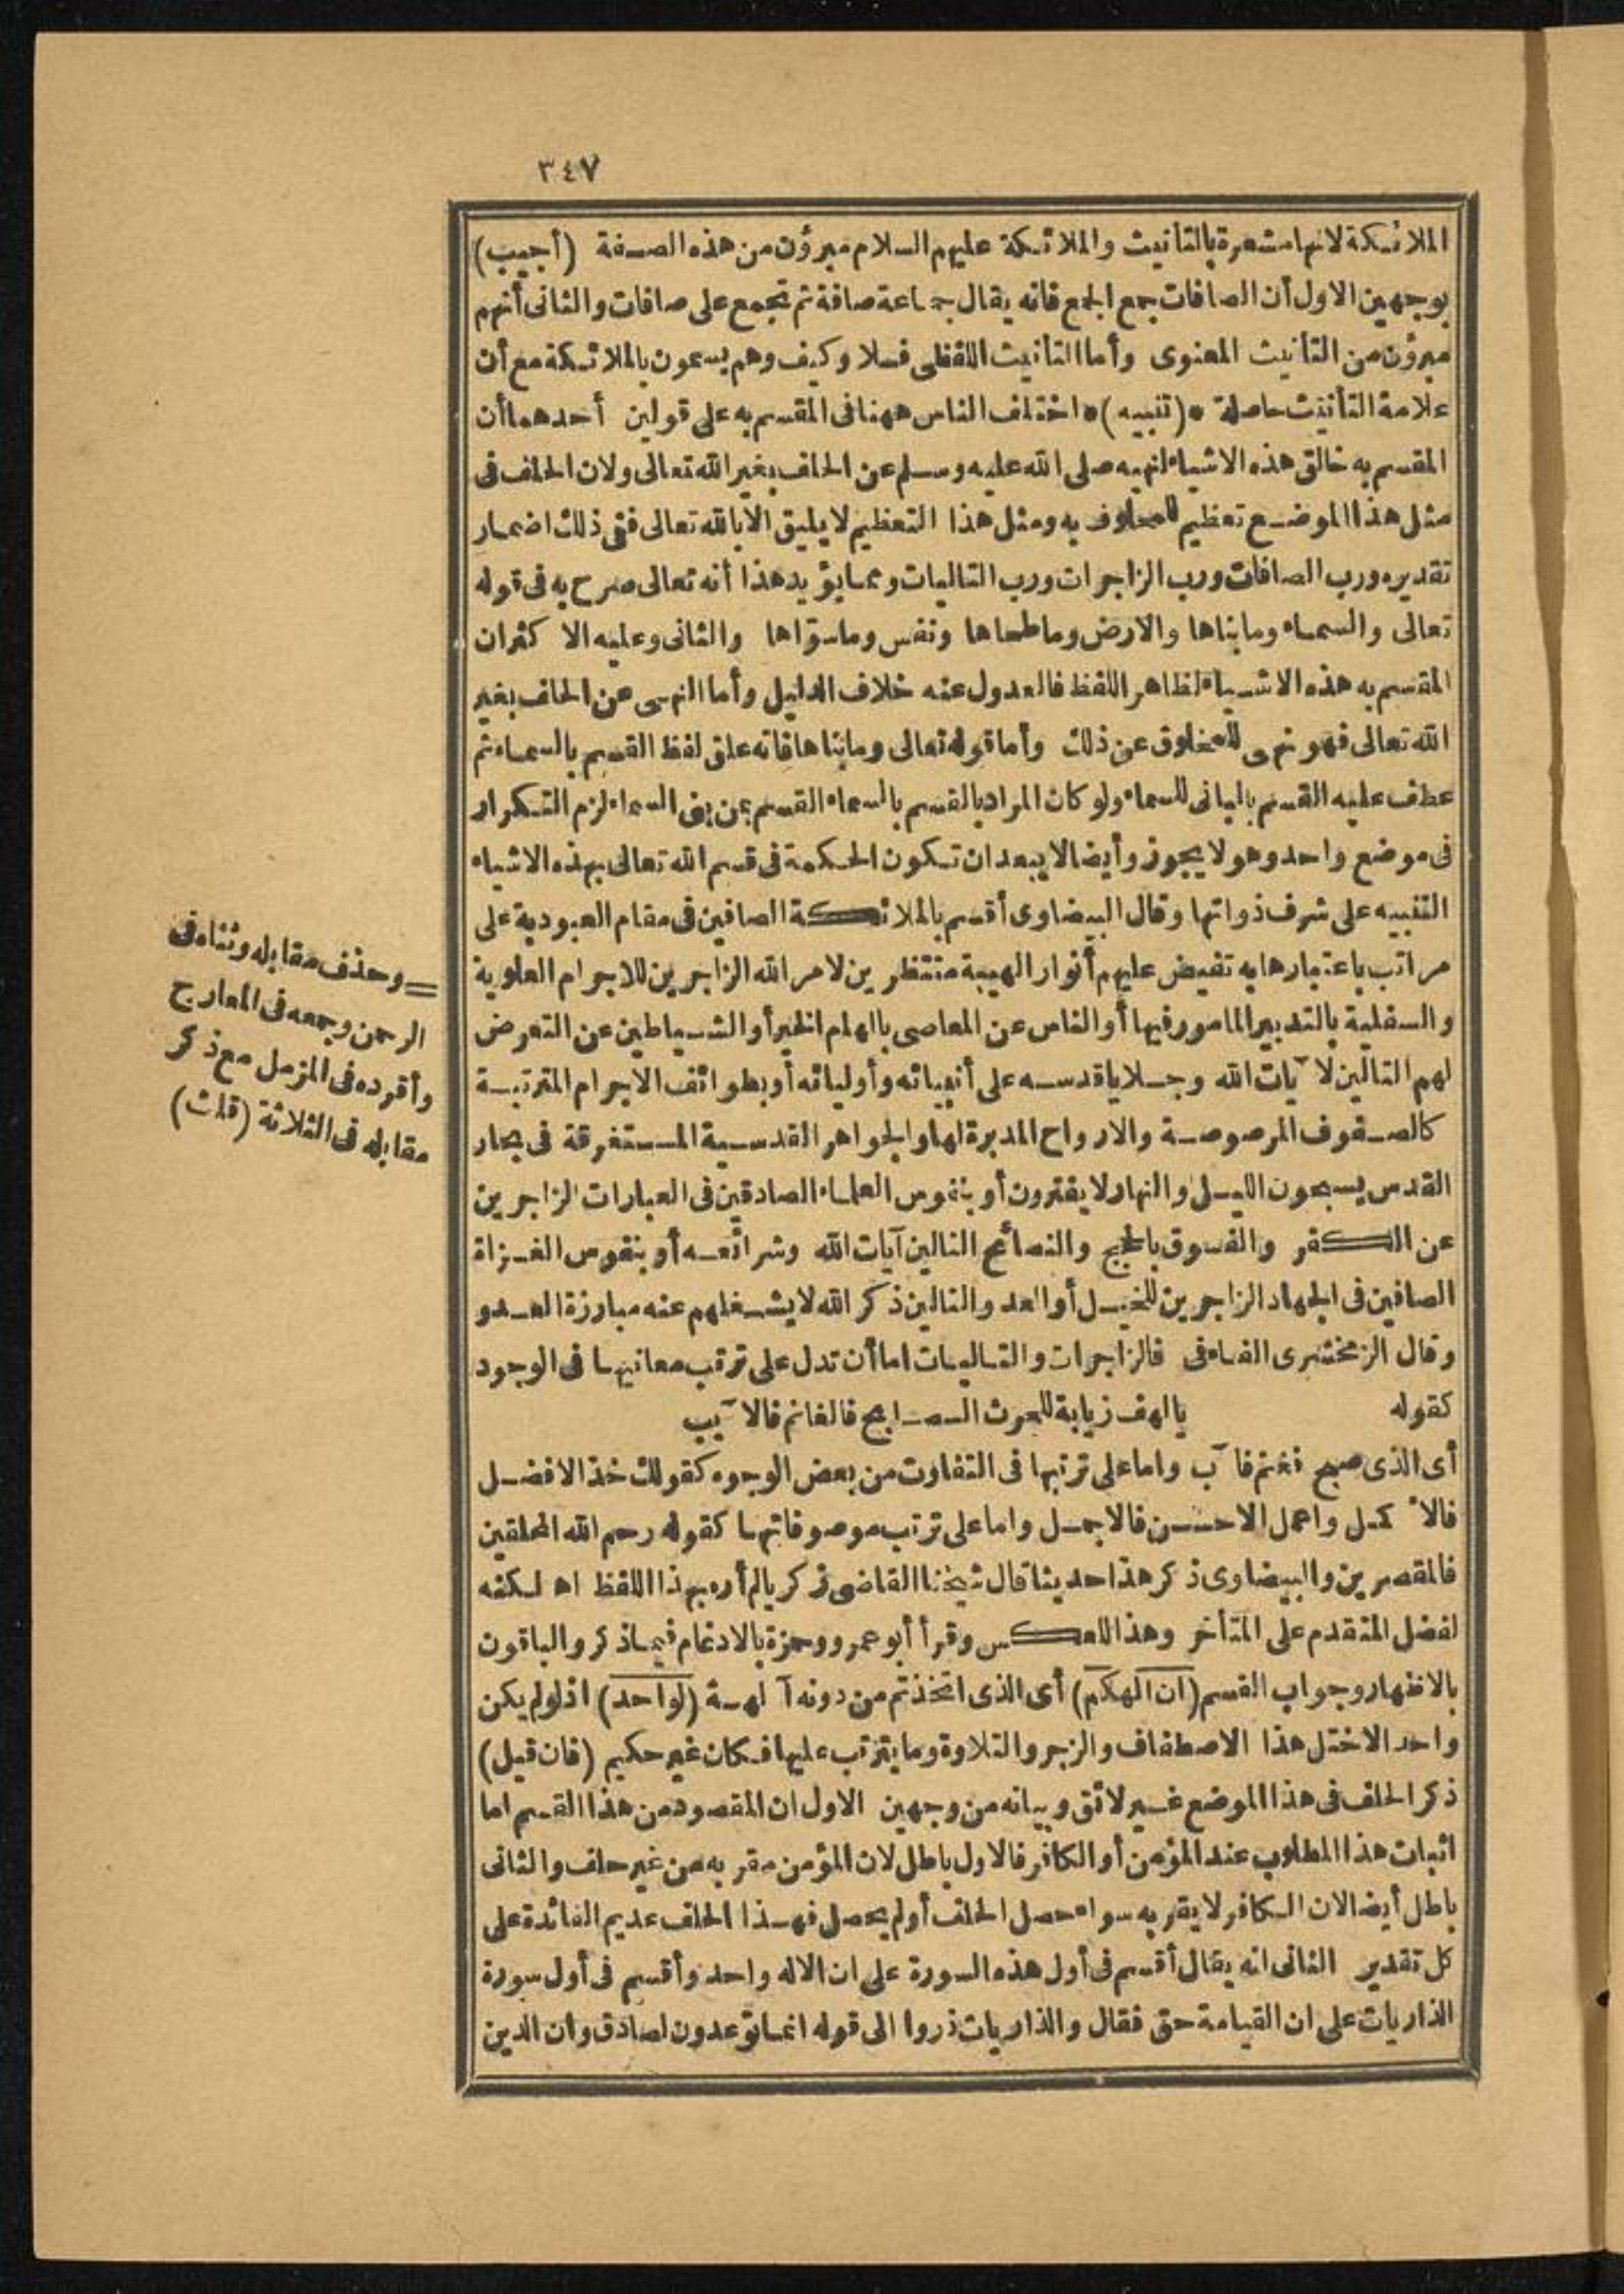 ٣٤٧
الملائكة لانها مشعرة بالتأنيث والملائكة عليهم السلام مبرؤن من هذه الصفة (أجيب)
بوجهين الاول أن الصافات جمع الجمع فانه يقال جماعة صافة ثم تجمع على صافات والثانى أنهم
مبرؤن من التأنيث المعنوى وأما التأنيث اللفظى فلا وكيف وهم يسمون بالملائكة مع أن
علامة التأنيث حاصلة *(تنبيه)* اختلف الناس ههنا فى المقسم به على قولين أحدهما أن
المقسم به خالق هذه الاشياء لنهيه صلى الله عليه وسلم عن الحلف بغير الله تعالى ولان الحلف فى
مثل هذا الموضع تعظيم للمحلوف به ومثل هذا التعظيم لا يليق الا بالله تعالى ففى ذلك اضمار
تقديره ورب الصافات ورب الزاجرات ورب التاليات ومما يؤيد هذا أنه تعالى صرح به فى قوله
تعالى والسماء وما بناها والارض وما طحاها ونفس وما سوّاها والثانى وعليه الاكثران
المقسم به هذه الاشياء لظاهر اللفظ فالعدول عنه خلاف الدليل وأما النهى عن الحلف بغير
الله تعالى فهو نهى للمخلوق عن ذلك وأما قوله تعالى وما بناها فانه علق لفظ القسم بالسماء ثم
عطف عليه القسم بالبانى للسماء ولو كان المراد بالقسم بالسماء القسم بمن بنى السماء لزم التكرار
فى موضع واحد وهو لا يجوز وأيضا لا يبعد ان تكون الحكمة فى قسم الله تعالى بهذه الاشياء
التنبيه على شرف ذواتها وقال البيضاوى أقسم بالملائكة الصافين فى مقام العبودية على
مراتب باعتبارها به تفيض عليهم أنوار الهيبة منتظرين لامر الله الزاجرين للاجرام العلوية
والسفلية بالتدبير المامور فيها أو الناس عن المعاصى بالهام الخير أو الشياطين عن التعرض
لهم التالين لآيات الله وجلايا قدسه على أنبيائه وأوليائه أو بطوائف الاجرام المترتبة
كالصفوف المرصوصة والارواح المدبرة لها والجواهر القدسية المستغرقة فى بحار
القدس يسبحون الليل والنهار لا يفترون أو بنفوس العلماء الصادقين فى العبارات الزاجرين
عن الكفر والفسوق بالحجج والنصائح التالين آيات الله وشرائعه أو بنفوس الغزاة
الصافين فى الجهاد الزاجرين للخيل أو العد والتالين ذكر الله لا يشغلهم عنه مبارزة العدو
وقال الزمخشرى الفاء فى فالزاجرات والتاليات اما أن تدل على ترتب معانيها فى الوجود
كقوله يا لهف زيابة للحرث الصابح فالغانم فالآيب
أى الذى صبح فغنم فآب واما على ترتبها فى التفاوت من بعض الوجوه كقولك خذ الافضل
فالاكمل واعمل الاحسن فالاجمل واما على ترتب موصوفاتها كقوله رحم الله المحلقين
فالمقصرين والبيضاوى ذكر هذا حديثا قال شيخنا القاضى زكريا لم أره بهذا اللفظ اه لكنه
لفضل المتقدم على المتأخر وهذا للعكس وقرأ أبو عمرو وحمزة بالادغام فيما ذكر والباقون
بالاظهار وجواب القسم (ان الهكم) أى الذى اتخذتم من دونه آلهة (لواحد) اذ لو لم يكن
واحدا لاختل هذا الاصطفاف والزجر والتلاوة وما يترتب عليها فكان غير حكيم (فان قيل)
ذكر الحلف فى هذا الموضع غير لائق وبيانه من وجهين الاول ان المقصود من هذا القسم اما
اثبات هذا المطلوب عند المؤمن أو الكافر فالاول باطل لان المؤمن مقر به من غير حلف والثانى
باطل أيضا لان الكافر لا يقر به سواء حصل الحلف أو لم يحصل فهذا الحلف عديم الفائدة على
كل تقدير الثانى انه يقال أقسم فى أول هذه السورة على ان الاله واحد وأقسم فى أول سورة
الذاريات على ان القيامة حق فقال والذاريات ذروا الى قوله انما توعدون لصادق وان الدين
= وحذف مقابله وثناه فى
الرحمن وجمعه فى المعارج
وأفرده فى المزمل مع ذكر
مقابله فى الثلاثة (قلت)